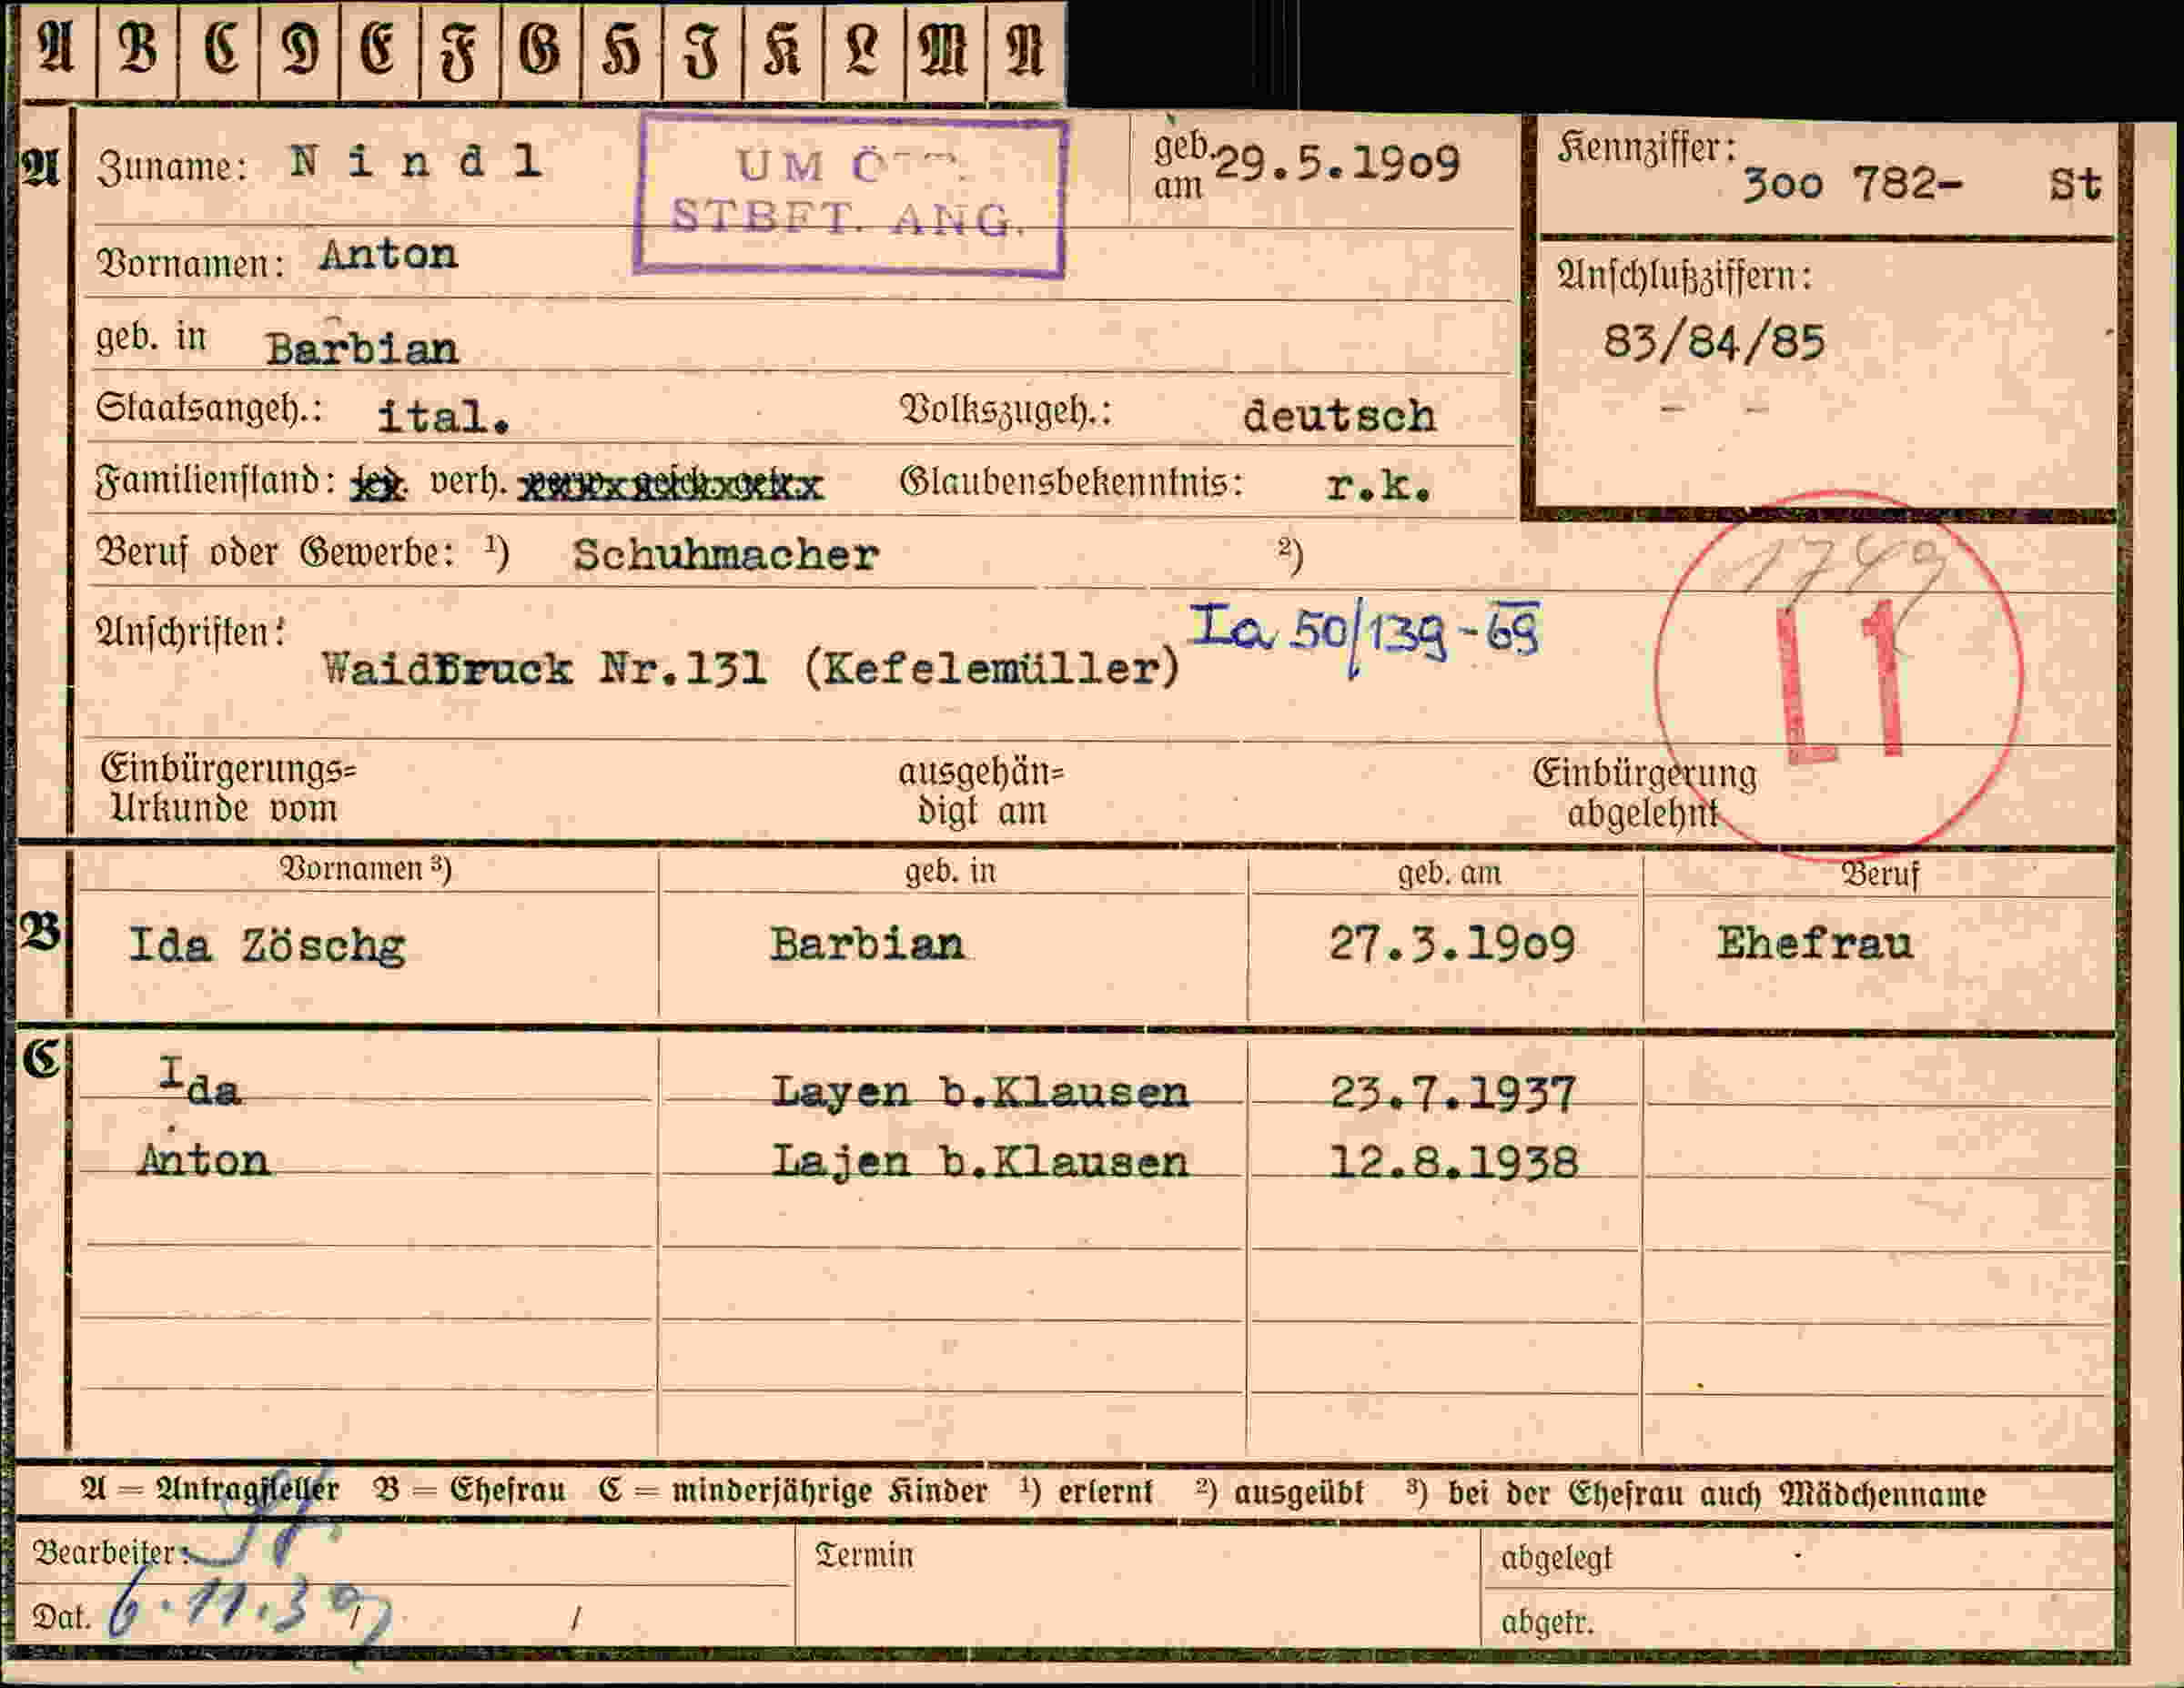 A B C D E F G H I K L M N
A Zuname: Nindl
UM Ö
STBFT. ANG.
geb. am 29.5.1909
Kennziffer: 300 782- St
Vornamen: Anton
Anschlußziffern:
83/84/85
- -
geb. in Barbian
Staatsangeh.: ital. Volkszugeh.: deutsch
Familienstand: led. verh. Glaubensbekenntnis: r.k.
Beruf oder Gewerbe: ¹) Schuhmacher ²)
1749
L1
Anschriften: Waidbruck Nr.131 (Kefelemüller)
Ia 50/139-69
Einbürgerungs=
Urkunde vom
ausgehän=
digt am
Einbürgerung
abgelehnt
Vornamen ³) geb. in geb. am Beruf
B Ida Zöschg Barbian 27.3.1909 Ehefrau
C Ida Layen b.Klausen 23.7.1937
Anton Lajen b.Klausen 12.8.1938
A = Antragsteller B = Ehefrau C = minderjährige Kinder ¹) erlernt ²) ausgeübt ³) bei der Ehefrau auch Mädchenname
Bearbeiter: Termin abgelegt
Dat. 6.11.39 / abgetr.